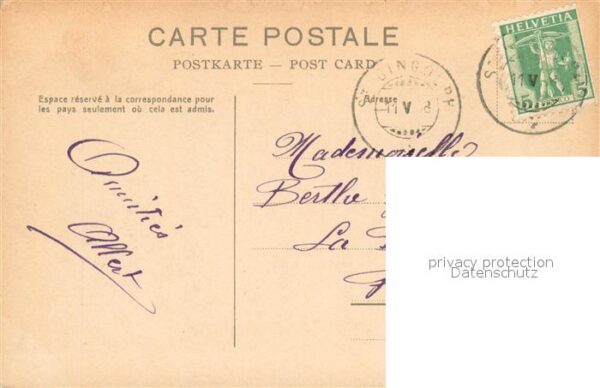 CARTE POSTALE
POSTKARTE — POST CARD
HELVETIA
11 V
11 V
5 5
Espace réservé à la correspondance pour
les pays seulement où cela est admis.
Adresse
Amitiés
Albert
Mademoiselle
Berthe
La
privacy protection
Datenschutz